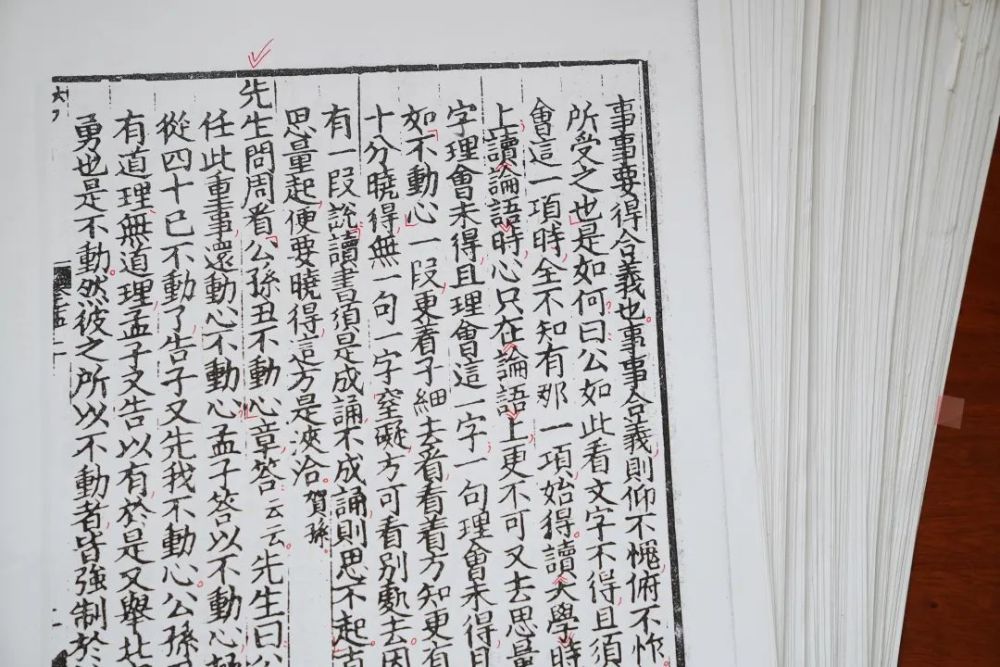 事事要得合義也事事合義則仰不愧俯不怍
所受之也是如何曰公如此看文字不得且須
會這一項時全不知有那一項始得讀大學時
上讀論語時心只在論語上更不可又去思量
字理會未得且理會這一字一句理會未得且
如不動心一段更着子細去看看着方知更有
十分曉得無一句一字窒礙方可看別䖏去因
有一段說讀書須是成誦不成誦則思不起
思量起便要曉得這方是浹洽賀孫
先生問周看公孫丑不動心章答云云先生曰公
任此重事還動心不動心孟子答以不動心
從四十已不動了告子又先我不動心公孫
有道理無道理孟子又告以有於是又舉北
勇也是不動然彼之所以不動者皆強制於